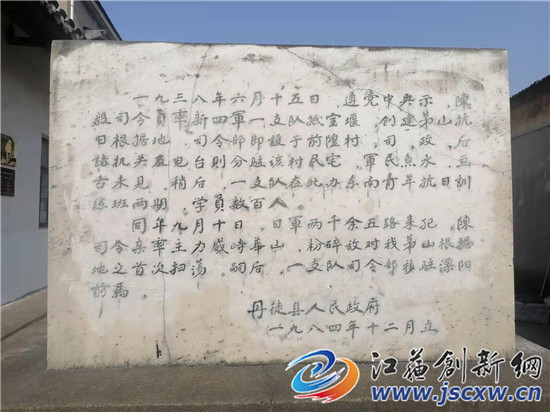 一九三八年六月十五日，遵党中央示，陳
毅司令員率新四軍一支队抵宝堰，创建茅山抗
日根据地。司令部即设于前隍村。司、政、后
诸机关及电台则分驻该村民宅。軍民魚水，亘
古未見。稍后，一支队在此办东南青年抗日訓
练班两期，学員数百人。
同年九月十日，日軍两千余五路来犯，陳
司令亲率主力威崎華山，粉碎敌对我茅山根据
地之首次扫荡。嗣后，一支队司令部移驻溧阳
前馬。
丹徒县人民政府
一九八四年十二月立
江苏创新網
www.jscxw.cn